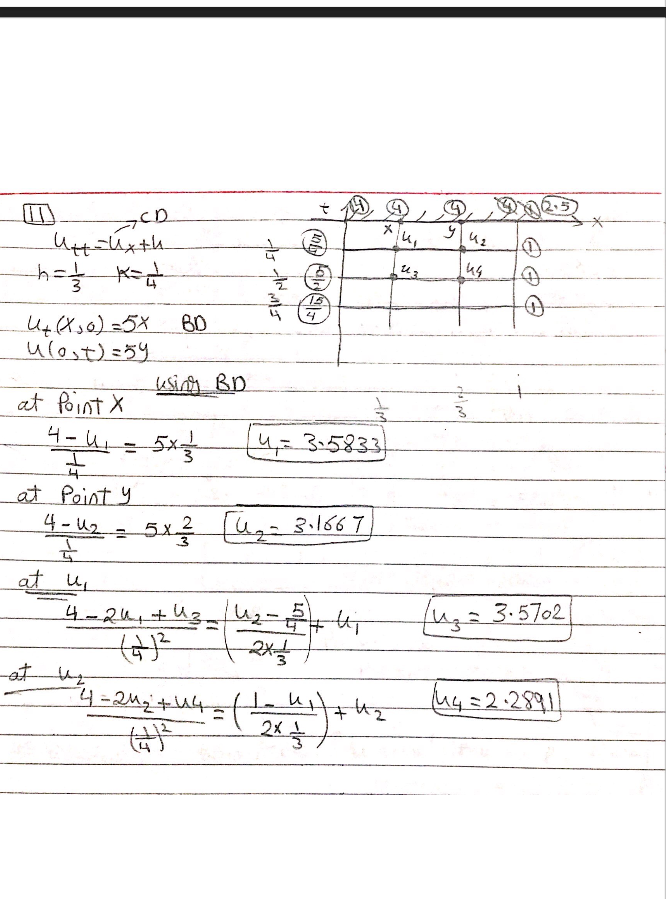 11
CD
u_tt = u_x + u
h = 1/3 K = 1/4
u_t(x,0) = 5x BD
u(0,t) = 5y
t 4 4 4 4 2.5 x
x y
1/4 5/4 u₁ u₂ 1
1/2 5/2 u₃ u4 1
3/4 15/4 1
1/3 2/3 1
using BD
at Point X
(4 - u₁)/(1/4) = 5 × 1/3 u₁ = 3.5833
at Point y
(4 - u₂)/(1/4) = 5 × 2/3 u₂ = 3.1667
at u₁
(4 - 2u₁ + u₃)/(1/4)² = ((u₂ - 5/4)/(2×1/3)) + u₁ u₃ = 3.5702
at u₂
(4 - 2u₂ + u4)/(1/4)² = ((1 - u₁)/(2×1/3)) + u₂ u4 = 2.2891